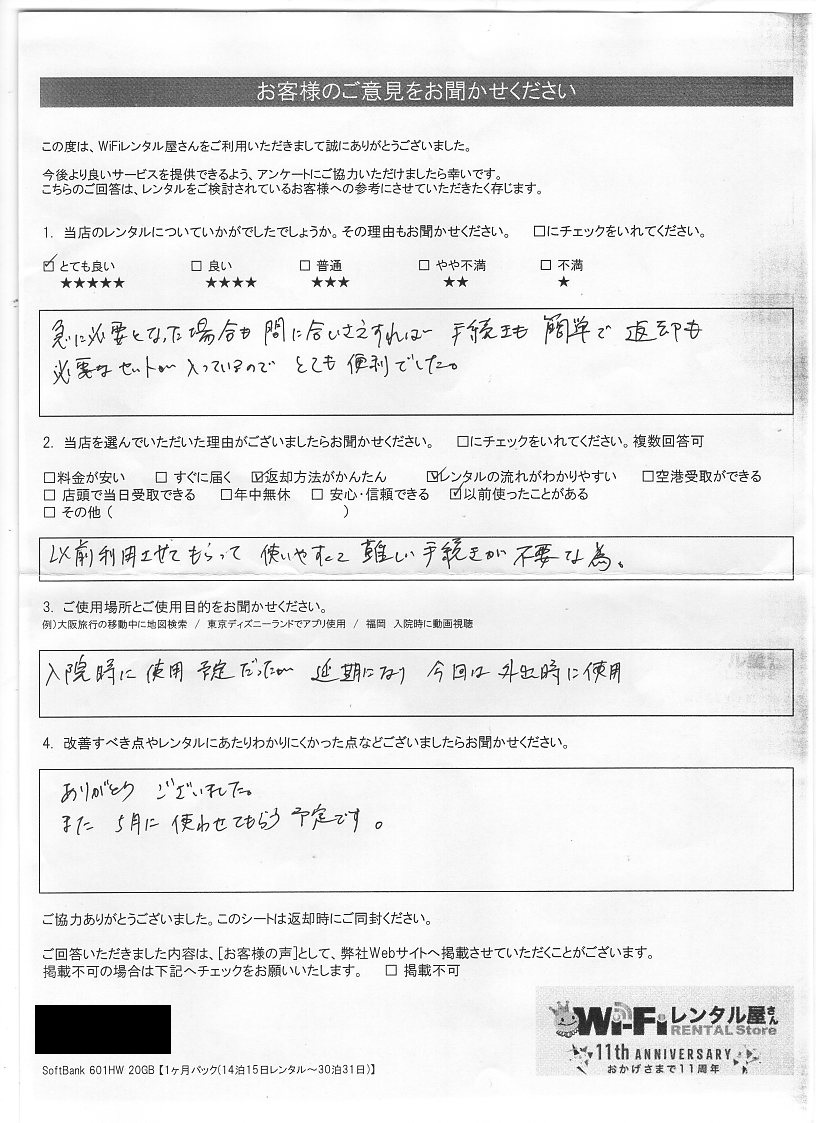 お客様のご意見をお聞かせください
この度は、WiFiレンタル屋さんをご利用いただきまして誠にありがとうございました。
今後より良いサービスを提供できるよう、アンケートにご協力いただけましたら幸いです。
こちらのご回答は、レンタルをご検討されているお客様への参考にさせていただきたく存じます。
1. 当店のレンタルについていかがでしたでしょうか。その理由もお聞かせください。 □にチェックをいれてください。
☑ とても良い □ 良い □ 普通 □ やや不満 □ 不満
★★★★★ ★★★★ ★★★ ★★ ★
急に必要となった場合も間に合いさえすれば 手続きも 簡単で 返却も
必要なセットが 入っているので とても 便利でした。
2. 当店を選んでいただいた理由がございましたらお聞かせください。 □にチェックをいれてください。複数回答可
□料金が安い □ すぐに届く ☑返却方法がかんたん ☑レンタルの流れがわかりやすい □空港受取ができる
□ 店頭で当日受取できる □年中無休 □ 安心・信頼できる ☑以前使ったことがある
□ その他 ( )
以前利用させてもらって 使いやすく 難しい手続きが 不要な為。
3. ご使用場所とご使用目的をお聞かせください。
例)大阪旅行の移動中に地図検索 / 東京ディズニーランドでアプリ使用 / 福岡 入院時に動画視聴
入院時に 使用 予定だったが 延期になり 今回は 外出時に使用
4. 改善すべき点やレンタルにあたりわかりにくかった点などございましたらお聞かせください。
ありがとう ございました。
また 5月に 使わせてもらう 予定です。
ご協力ありがとうございました。このシートは返却時にご同封ください。
ご回答いただきました内容は、[お客様の声]として、弊社Webサイトへ掲載させていただくことがございます。
掲載不可の場合は下記へチェックをお願いいたします。 □ 掲載不可
Wi-Fiレンタル屋さん
RENTAL Store
11th ANNIVERSARY
おかげさまで11周年
SoftBank 601HW 20GB【1ヶ月パック(14泊15日レンタル～30泊31日)】